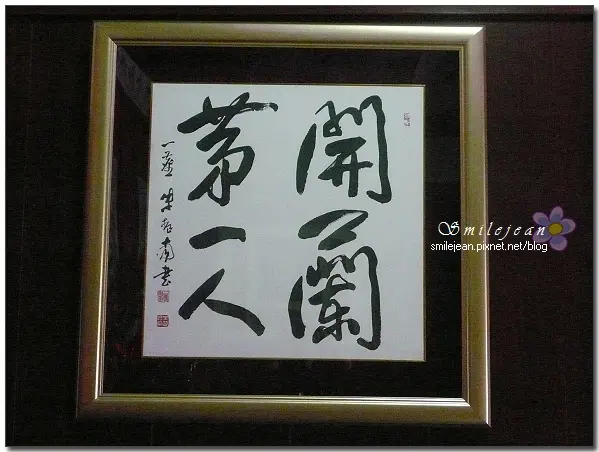 開蘭
第一人
朱振南書
Smilejean
smilejean.pixnet.net/blog